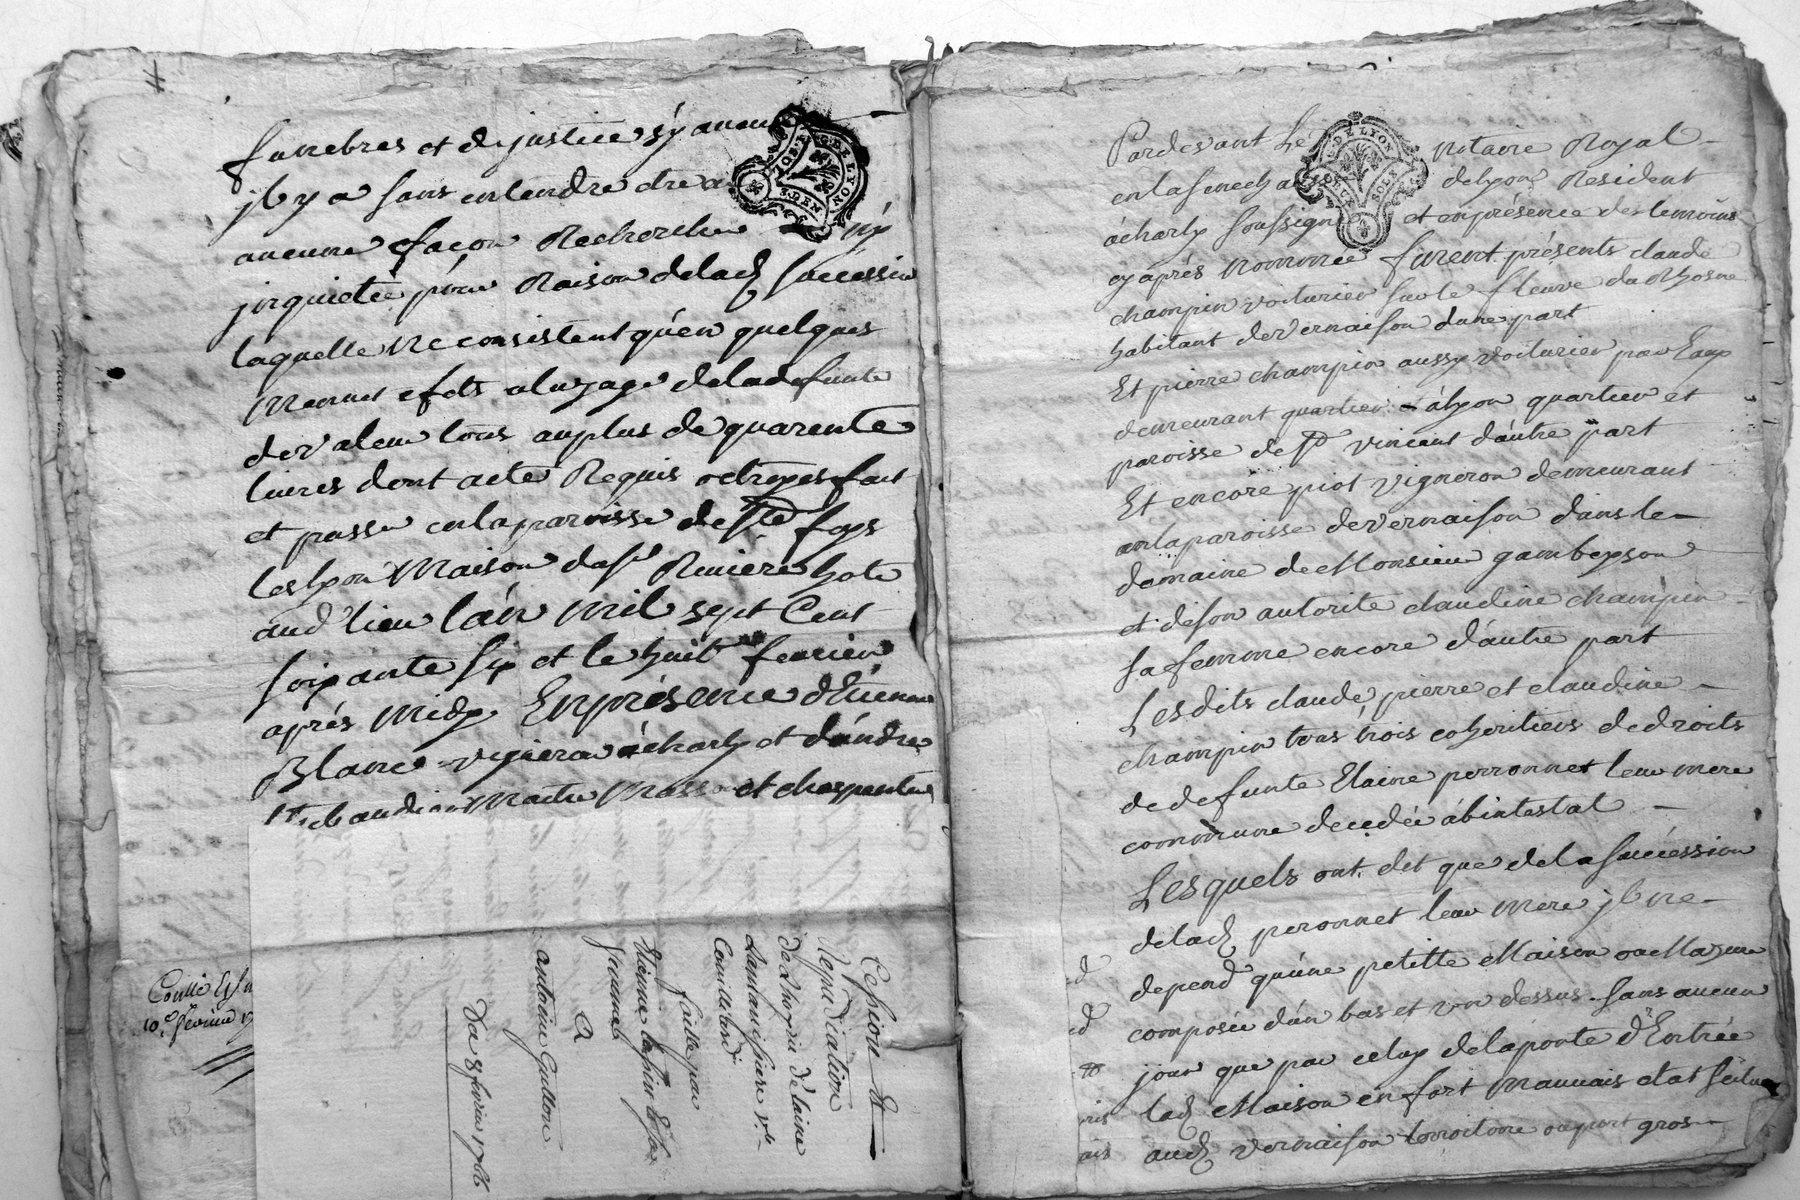 funebres et de justice s'y aucun
jl y a sans entendre etre
aucune façon Recherchée ny
jnquietée pour Raison de lad succession
laquelle ne consistent qu'en quelques
menus efets a l'uzage de la defunte
de valeur tous au plus de quarente
livres dont acte Requis octroyes fait
et passé en la paroisse de Ste foys
les lyon Maison du sr Riviere hote
aud lieu l'an mil sept Cent
soixante six et le huit fevrier
aprés midy En présence d'Etienne
Blanc vigneron à charly et d'andré
Maitre Masson et charpentier
Cession &
repudiation
de l'hoyrie de laine
Couillerd
faitte par
Etienne
a
antoine Guillon
Du 8 fevrier 1766
10e fevrier 17
GEN
DE LYON
Pardevant Le notaire Royal
en la senecha de lyon Resident
à charly soussigné et en présence des temoins
cy aprés nommée furent présents claude
champin voiturier sur le fleuve du Rhosne
habitant de vernaison d'une part
Et pierre champin aussy voiturier par Eaux
demeurant quartier à lyon quartier et
paroisse de St vincent d'autre part
Et encore piot vigneron demeurant
en la paroisse de vernaison dans le
domaine de Monsieur gambeyson
et de son autorité claudine champin
sa femme encore d'autre part
Lesdits claude, pierre et claudine
champin tous trois coheritiers de droits
de defunte Elaine perronnet leur mere
commune decedée abintestat
Lesquels ont dit que de la succéssion
de lad peronnet leur mere jl ne
depend qu'une petitte Maison ou Mazure
composée d'un bas et un dessus sans aucun
jour que par celuy de la porte d'Entrée
lad Maison en fort mauvais etat située
aud vernaison territoire ou port gros
DE LYON
DEUX SOLS